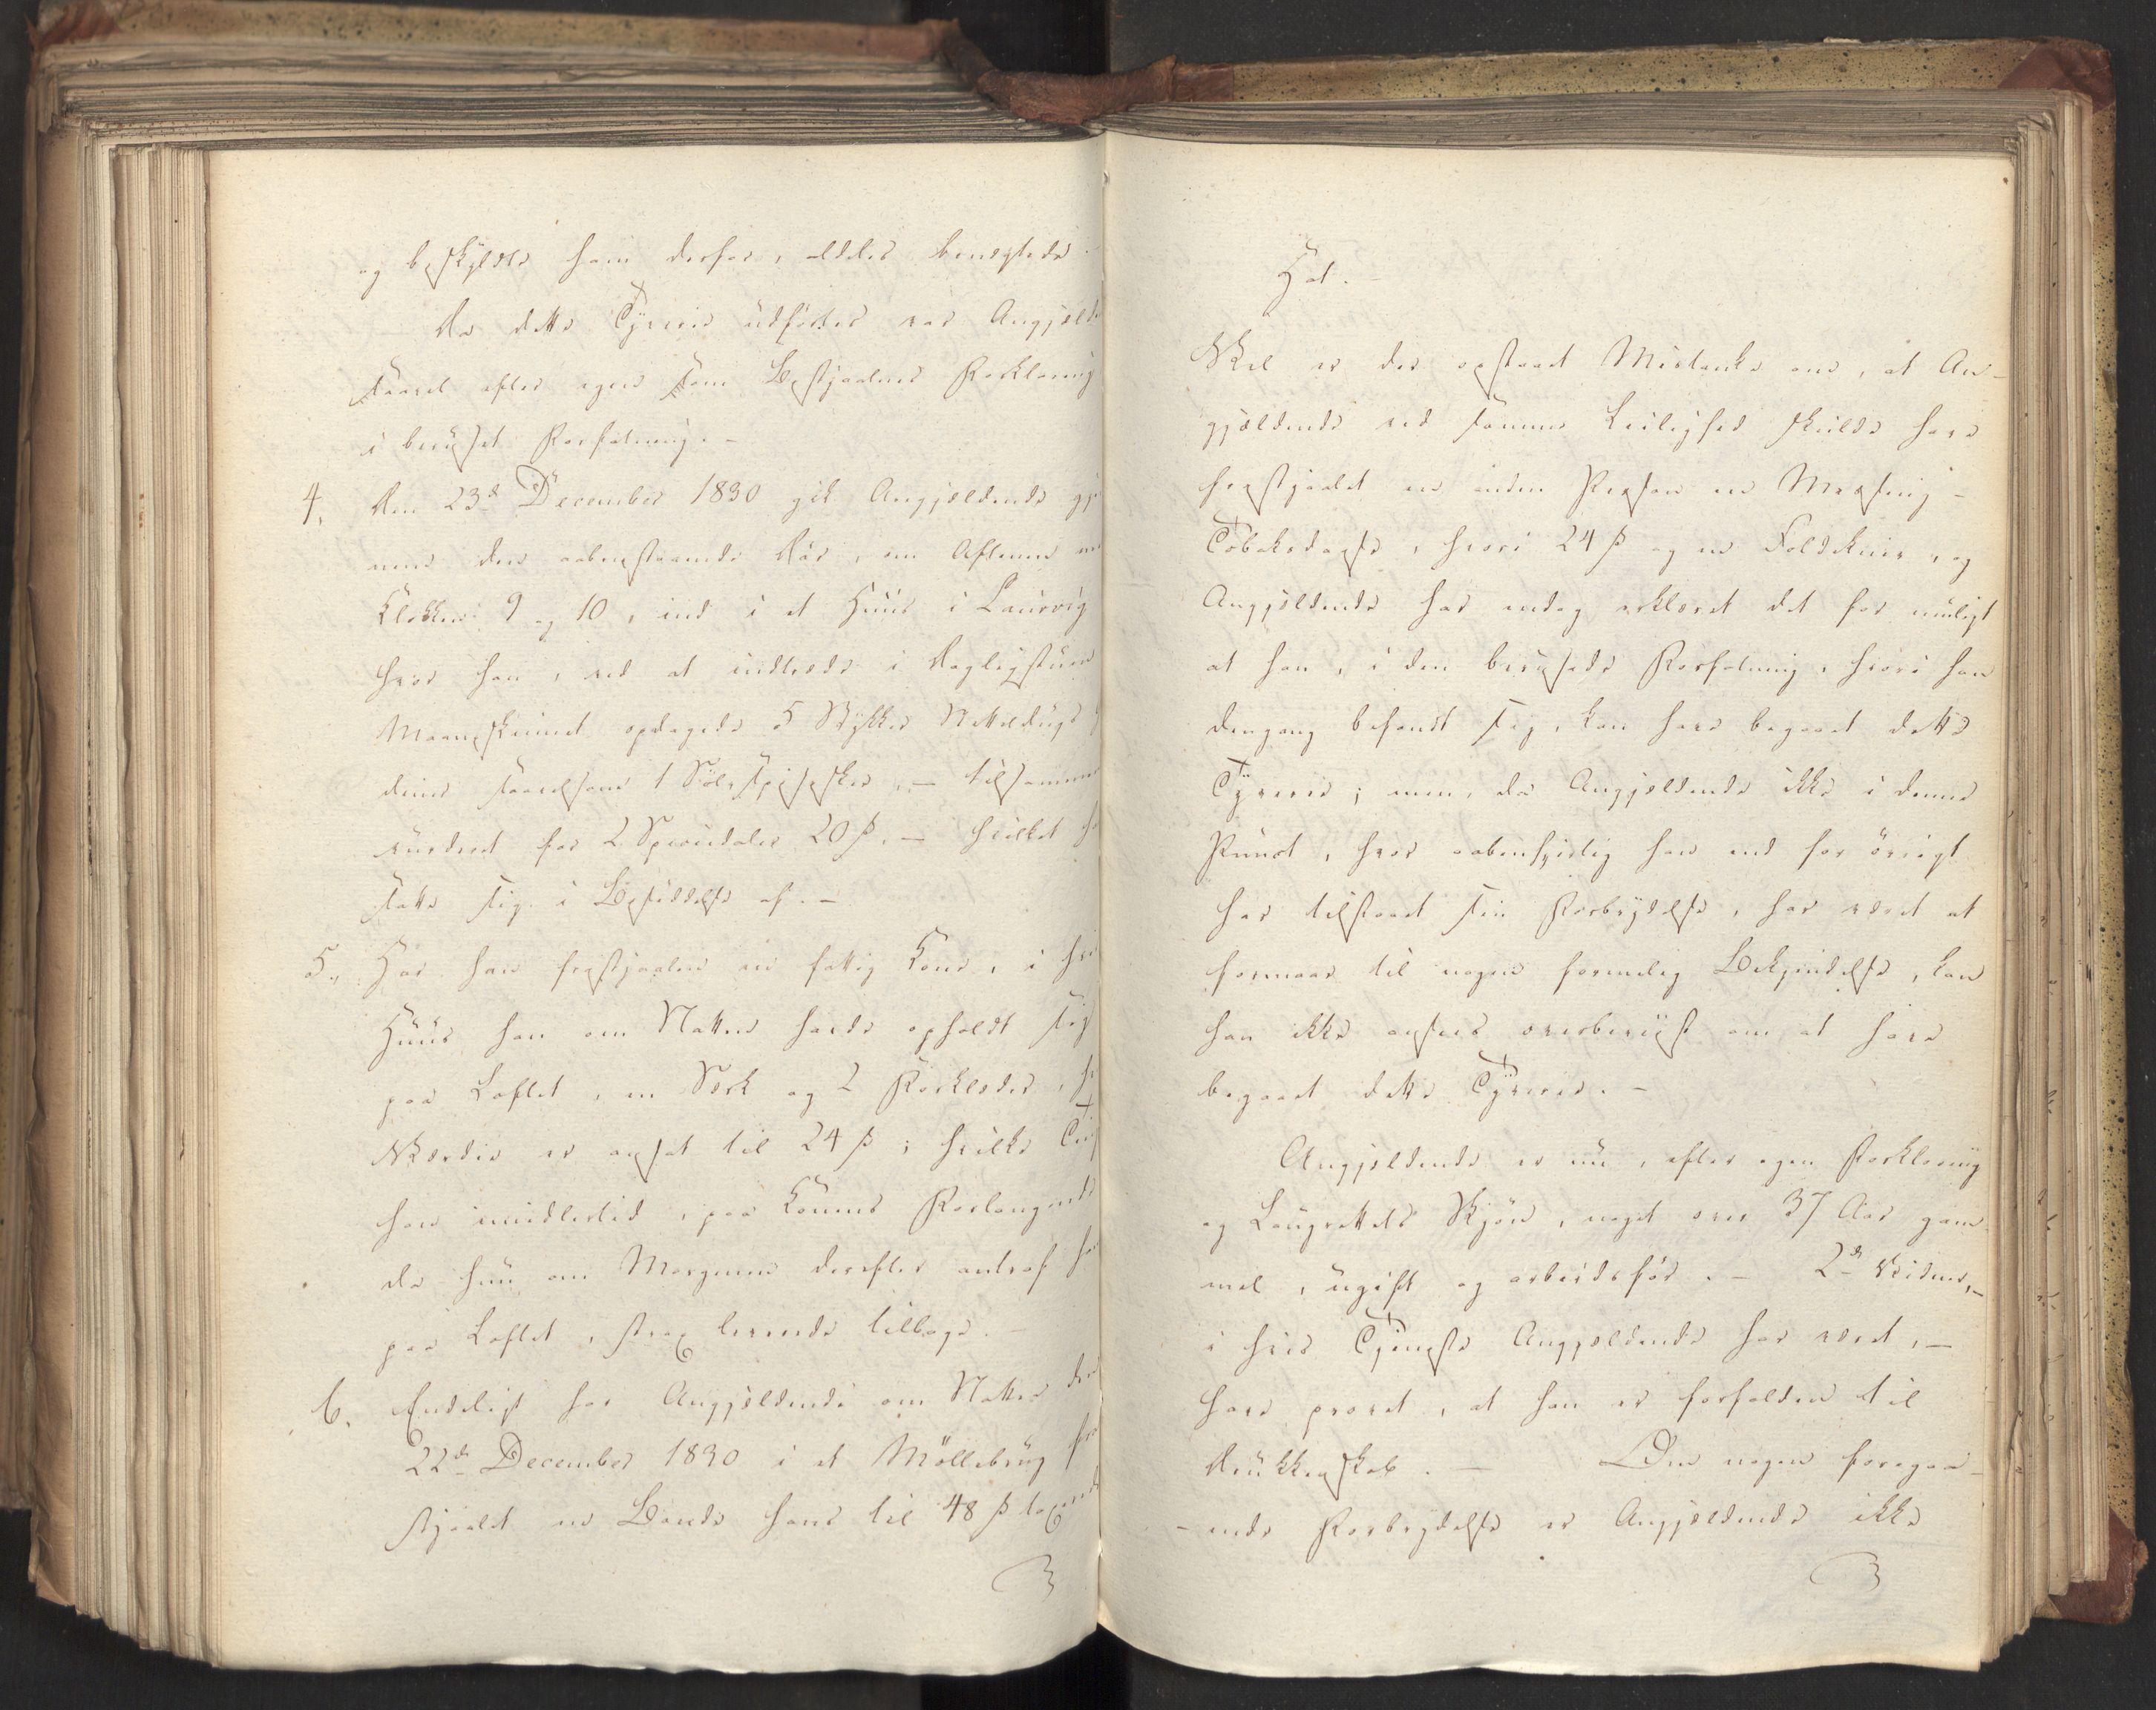 og beskyldte ham derfor, aldeles benegtede.
Da dette Tyverie udførtes var Angjeld
saavel efter egen som Bestjaalnes Forklaring
i beruset Forfatning. –
4. Den 23d December 1830 gik Angjeldende gj
nem den aabenstaaende Dör, om Aftenen m
Klokken 9 og 10, ind i et Huus i Laurvig
hvor han, ved at indtræde i Dagligstuen
Maaneskinnet opdagede 5 Stykker Netteldugs
diner saavelsom 1 Sølv Spiseskee, – tilsammen
vurderet for 2 Speciedaler 20 ß. – hvilket h
satte sig i Besiddelse af. –
5. Har han frastjaalen en fattig Kone, i hvi
Huus han om Natten havde opholdt sig
paa Loftet, en Særk og 2 Forklæder, h
Værdie er ansat til 24 ß; hvilke Ting
han imidlertid, paa Konens Forlangende
da hun om Morgenen derefter antraf ha
paa Loftet, strax leverede tilbage. –
6. Endeligt har Angjeldende om Natten den
22de December 1830 i et Möllebrug fra
stjaalet en Bonde hans til 48 ß taxerede
Hat. –
Vel er der opstaaet Mistanke om, at An-
gjeldende ved samme Leilighed skulde have
frastjaalet en anden Person en Messing-
Tobaksdaase, hvori 24 ß og en Foldekniv, og
Angjeldende har endog erklæret det for muligt
at han, i den berusede Forfatning, hvori han
dengang befandt sig, kan have begaaet dette
Tyverie; men, da Angjeldende ikke i denne
Punct, hvor aabenhjertig han end for övrigt
har tilstaaet sin Forbrydelse, har været at
formaae til nogen formelig Bekjendelse, kan
han ikke ansees overbeviist om at have
begaaet dette Tyverie. –
Angjeldende er nu, efter egen Forklaring
og Laugrettets Skjön, noget over 37 Aar gam-
mel, ugift og arbeidsför. – 2de Vidner, –
i hvis Tjeneste Angjeldende har været, –
have provet, at han er forfalden til
Drukkenskab. – Om nogen foregaa-
-ende Forbrydelse er Angjeldende ikke